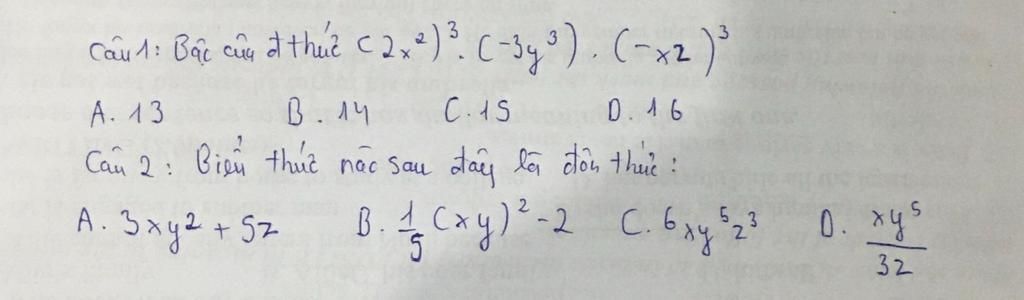 Câu 1: Bậc của đthức (2x²)³.(-3y³).(-xz)³
A. 13 B. 14 C. 15 D. 16
Câu 2: Biểu thức nào sau đây là đơn thức:
A. 3xy² + 5z B. 1/5 (xy)² - 2 C. 6xy⁵z³ D. xy⁵/3z